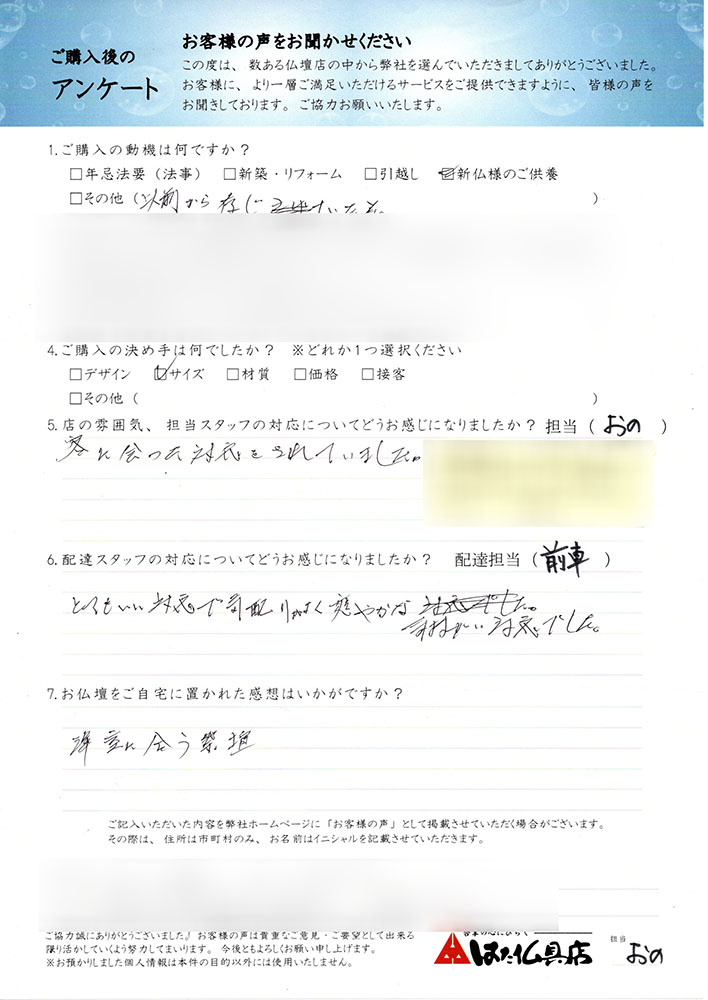 ご購入後の
アンケート
お客様の声をお聞かせください
この度は、数ある仏壇店の中から弊社を選んでいただきましてありがとうございました。
お客様に、より一層ご満足いただけるサービスをご提供できますように、皆様の声を
お聞きしております。ご協力お願いいたします。
1.ご購入の動機は何ですか？
□年忌法要（法事） □新築・リフォーム □引越し ☑新仏様のご供養
□その他（以前から ）
4.ご購入の決め手は何でしたか？ ※どれか1つ選択ください
□デザイン ☑サイズ □材質 □価格 □接客
□その他（ ）
5.店の雰囲気、担当スタッフの対応についてどうお感じになりましたか？ 担当（ おの ）
客に合った対応をされていました。
6.配達スタッフの対応についてどうお感じになりましたか？ 配達担当（ 前車 ）
とてもいい対応で気配りがよく爽やかな
対応でした。
7.お仏壇をご自宅に置かれた感想はいかがですか？
洋室に合う
ご記入いただいた内容を弊社ホームページに「お客様の声」として掲載させていただく場合がございます。
その際は、住所は市町村のみ、お名前はイニシャルを記載させていただきます。
ご協力誠にありがとうございました！お客様の声は貴重なご意見・ご要望として出来る
限り活かしていくよう努力してまいります。今後ともよろしくお願い申し上げます。
※お預かりしました個人情報は本件の目的以外には使用いたしません。
はた仏具店
担当
おの